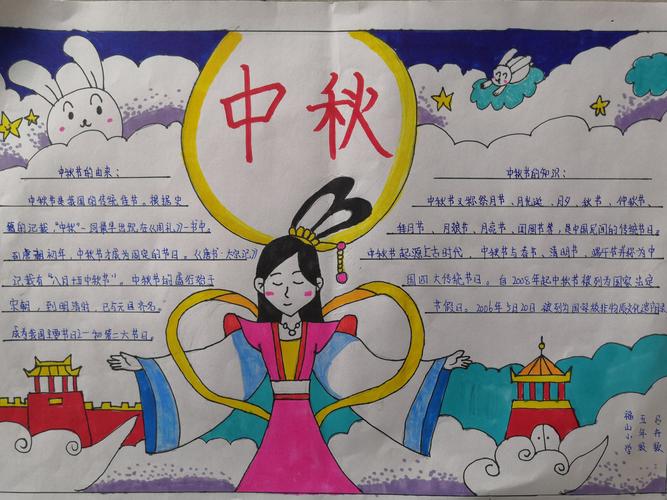 中秋
中秋节的由来：
中秋节是我国的传统佳节。根据史
籍的记载"中秋"一词最早出现在《周礼》一书中。
到唐朝初年，中秋节才成为固定的节日。《唐书·太宗记》
记载有"八月十五中秋节"。中秋节的盛行始于
宋朝，到明清时，已与元旦齐名，
成为我国主要节日之一和第二大节日。
中秋节的知识：
中秋节又称祭月节、月光诞、月夕、秋节、仲秋节、
拜月节、月娘节、月亮节、团圆节等，是中国民间的传统节日。
中秋节起源上古时代，中秋节与春节、清明节、端午节并称为中
国四大传统节日。自2008年起中秋节被列为国家法定
节假日。2006年5月20日被列为国家级非物质文化遗产
福山小学
五年级